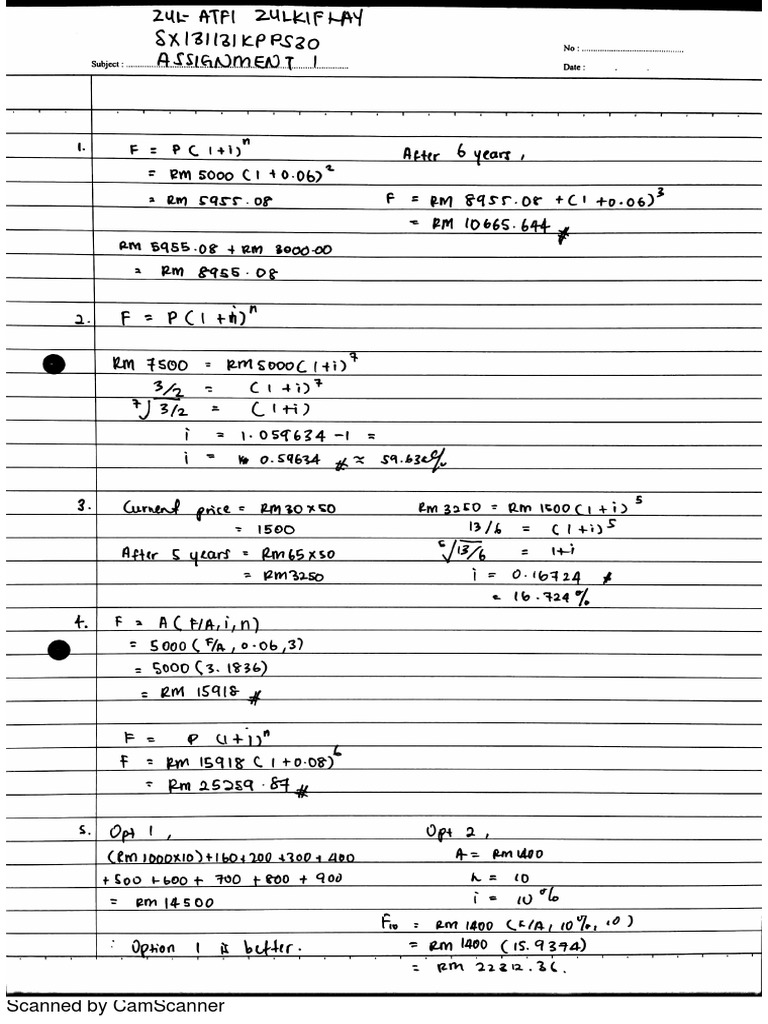 ZUL-ATPI ZULKIFLAY
SX131131KPPS30
No :
Subject : ASSIGNMENT 1
Date :
1. F = P(1+i)^n
= RM 5000 (1+0.06)^2
= RM 5955.08
RM 5955.08 + RM 3000.00
= RM 8955.08
After 6 years,
F = RM 8955.08 +(1+0.06)^3
= RM 10665.644 #
2. F = P(1+i)^n
RM 7500 = RM5000(1+i)^7
3/2 = (1+i)^7
7√3/2 = (1+i)
i = 1.059634 -1 =
i = 0.59634 # ≈ 59.63%
3. Current price = RM30 x 50
= 1500
After 5 years = RM65 x 50
= RM3250
RM3250 = RM1500(1+i)^5
13/6 = (1+i)^5
5√13/6 = 1+i
i = 0.16724 #
= 16.724%
4. F = A(F/A,i,n)
= 5000(F/A, 0.06,3)
= 5000(3.1836)
= RM 15918 #
F = P (1+i)^n
F = RM 15918 (1+0.08)^6
= RM 25259.87 #
5. Opt 1,
(RM1000x10)+160+200+300+400
+500+600+ 700 +800 + 900
= RM 14500
∴ Option 1 is better.
Opt 2,
A = RM1400
n = 10
i = 10%
F10 = RM 1400 (F/A, 10%, 10)
= RM 1400 (15.9374)
= RM 22312.36.
Scanned by CamScanner